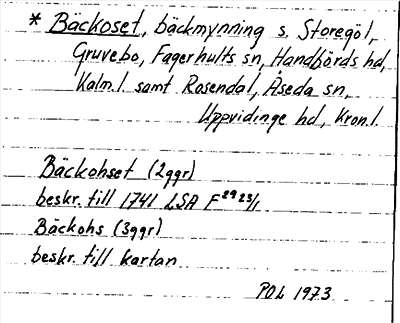 * Bäckoset, bäckmynning s. Storegöl,
Gruvebo, Fagerhults sn, Handbörds hd,
Kalm.l. samt Rosendal, Åseda sn,
Uppvidinge hd, Kron.l.
Bäckohset (2ggr)
beskr. till 1741 LSA F²⁹ ²³/₁
Bäckohs (3ggr)
beskr. till kartan
POL 1973